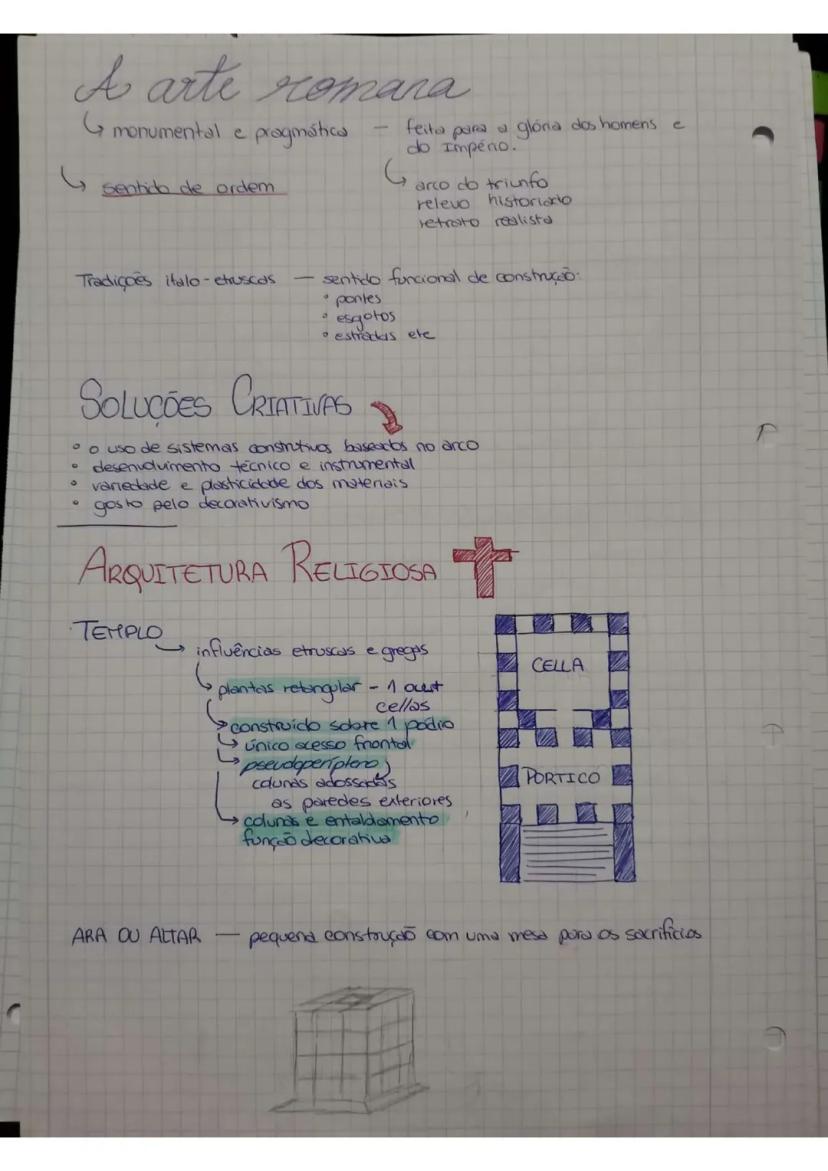 A arte romana
↳ monumental e pragmática — feita para a glória dos homens e
do Império.
↳ sentido de ordem
↳ arco do triunfo
relevo historiado
retrato realista
Tradições italo-etruscas — sentido funcional de construção:
• pontes
• esgotos
• estradas etc
SOLUÇÕES CRIATIVAS
• o uso de sistemas construtivos baseados no arco
• desenvolvimento técnico e instrumental
• variedade e plasticidade dos materiais
• gosto pelo decorativismo
ARQUITETURA RELIGIOSA
TEMPLO → influências etruscas e gregas
↳ plantas retangular - 1 out
cellas
↳ construído sobre 1 pódio
↳ único acesso frontal
↳ pseudoperíptero
colunas adossadas
as paredes exteriores
↳ colunas e entaldamento
função decorativa
CELLA
PORTICO
ARA OU ALTAR — pequena construção com uma mesa para os sacrifícios